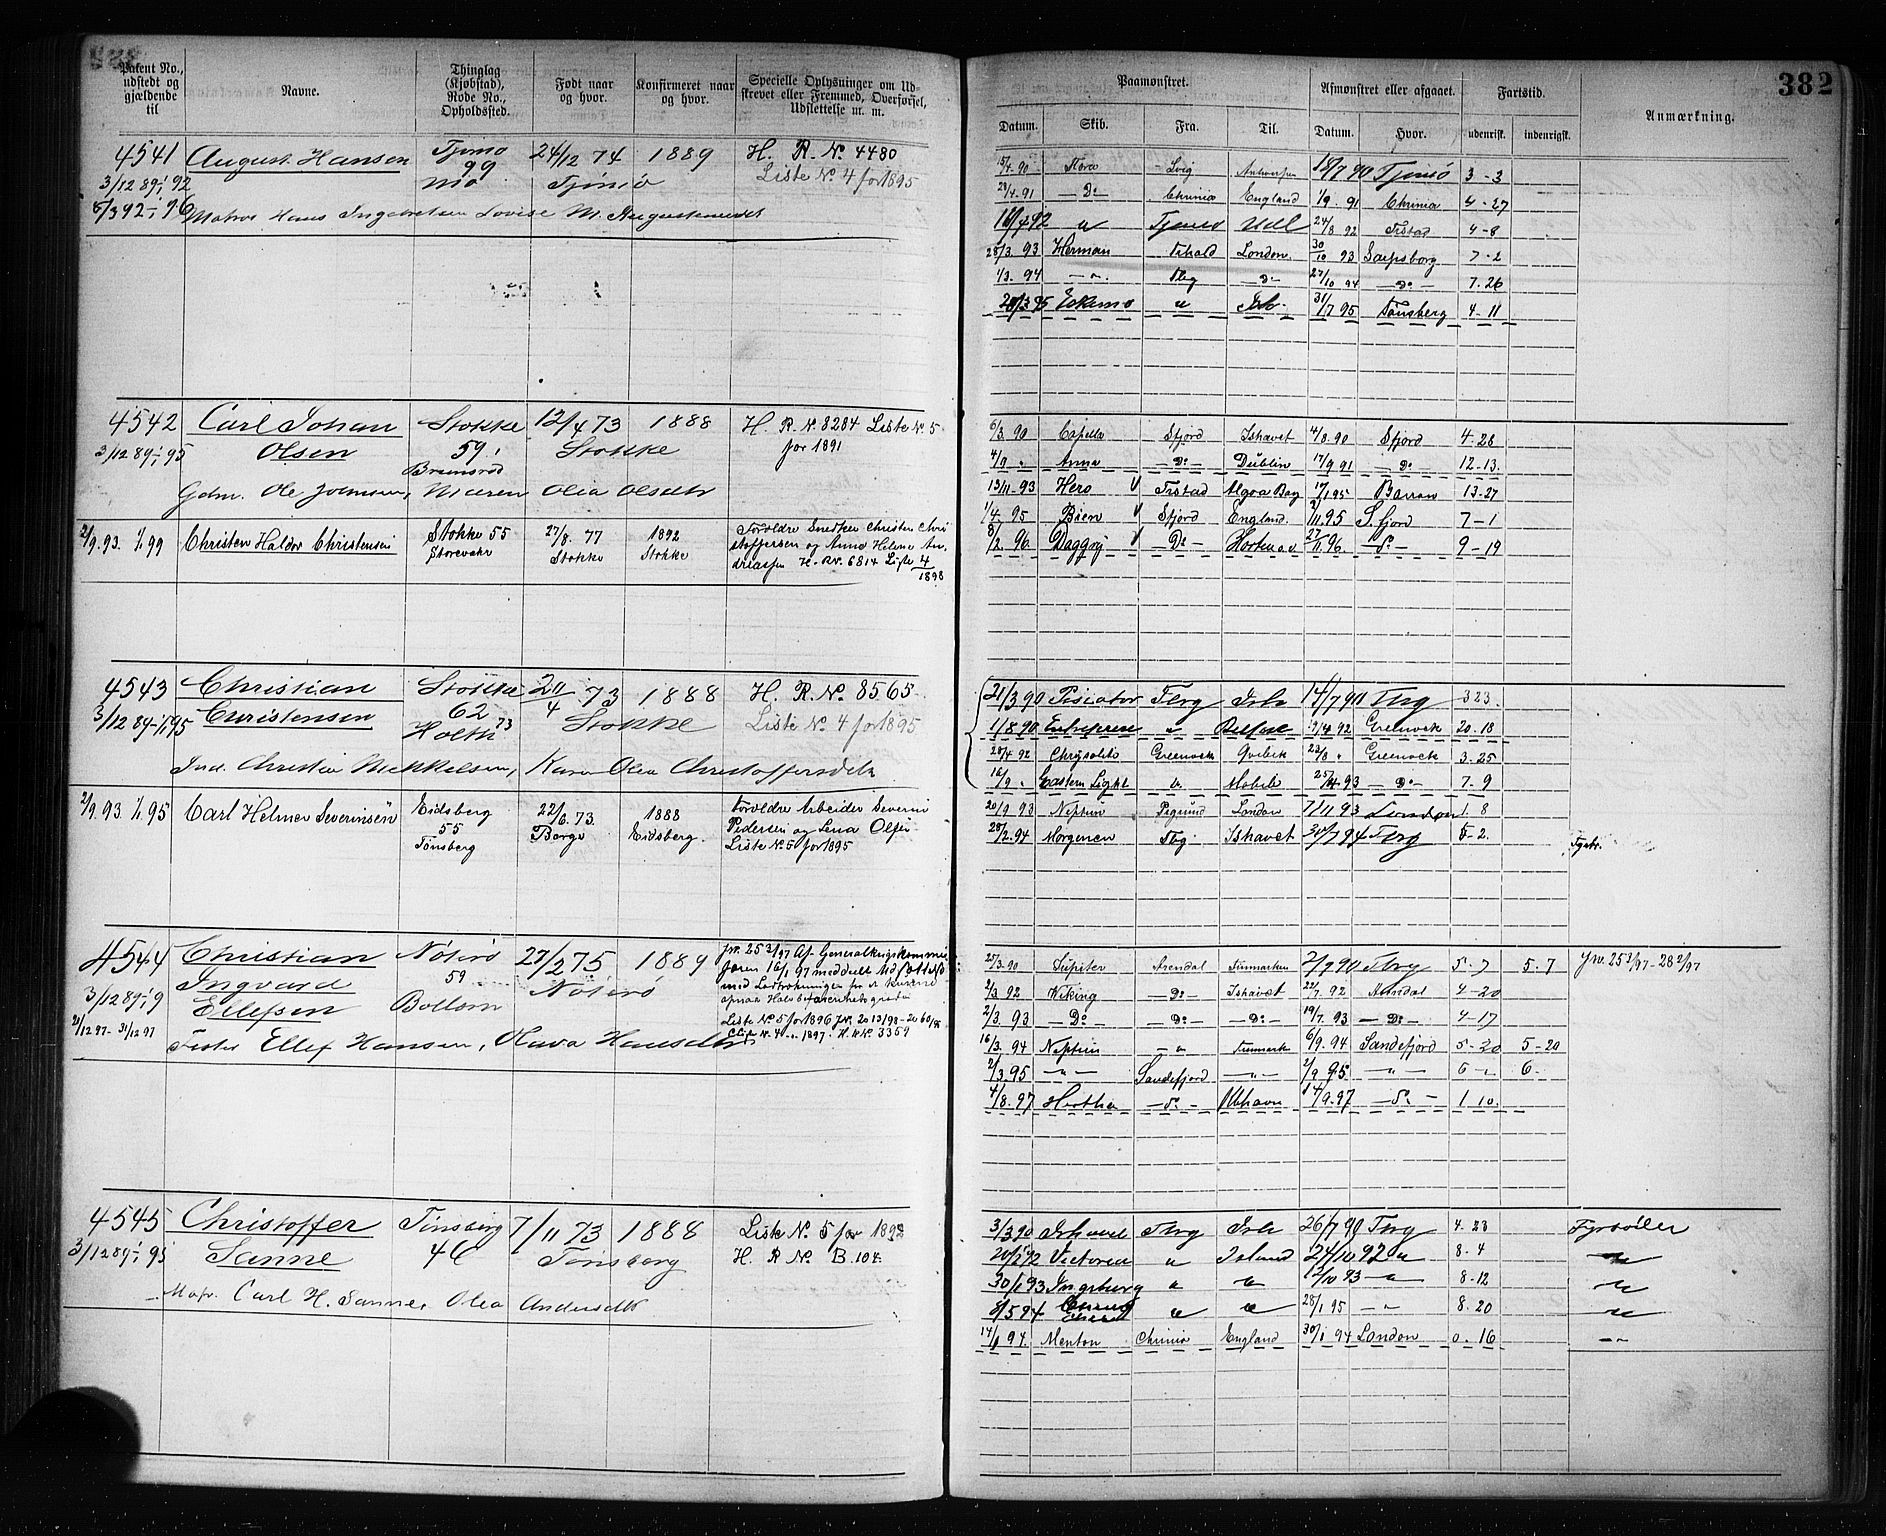 382
Patent No., udstedt og gjældende til
Navne.
Thinglag (Kjøbstad), Rode No., Opholdssted.
Født naar og hvor.
Konfirmeret naar og hvor.
Specielle Oplysninger om Udskrevet eller Fremmed, Overførsel, Udslettelse m. m.
Paamønstret.
Afmønstret eller afgaaet.
Fartstid.
Anmærkning.
Datum. Skib. Fra. Til. Datum. Hvor. udenrisk. indenrigsk.
4541 August Hansen Tjømø 24/12 74 1889 H. R. No. 4480
3/12 89 1/1 92 99 Tjømø Liste No. 4 for 1895
Mo
Matros Hans Ingebretsen Lovise M. Augustinusdt
15/4. 90 Flora Lvig Antwerpen 18/7 90 Tjømø 3-3
28/4. 91 — Do — Chrinia England 1/9. 91 Chrinia 4-27
16/4 92 " Tjømø Udl 24/8 92 Frstad 4-8
28/3. 93 Herman Frhald London 30/10 93 Sarpsborg 7-2
1/3. 94 — " — Tbg Do 27/10 94 — Do — 7.26
20/3 95 Eskimo " Ish. 31/7 95 Tønsberg 4-11
4542 Carl Johan Stokke 12/4 73 1888 H. R. N. 8284 Liste No. 5
3/12 89 1/1 95 Olsen 59 Stokke for 1891
Gdm. Ole Johnsen, Maren Olea Olsdtr
6/3. 90 Capella Sfjord Ishavet 4/8. 90 Sfjord 4-28
4/9 " Anna — Do — Dublin 17/9 91 — Do — 12-13.
13/11. 93 Hero V Frstad Algoa Bay 17/1 95 Barrow 13-27
1/4. 95 Bien V Sfjord England. 2/11. 95 S.fjord 7-1
8/2. 96. Daggry V — Do — Horten o.v. 27/11. 96. — Do — 9-19
2/9. 93. 1/1. 99 Christen Haldor Christensen Stokke 55 27/8. 77 1892 Forældre Snedker Christen Chri
Storevahr Stokke Stokke stoffersen og Anne Helene An
dreassen H. RN. 6814 Liste 4/1898
4543 Christian Stokke 20/4 73 1888 H. R. No. 8565
3/12 89 - 1/1 95 Christensen 62 Stokke Liste No. 4 for 1895
Ind. Christen Mikkelsen, Karen Olea Christoffersdtr
21/3 90 Piscator Tbrg Ish 14/7 90 Tbrg 3 23
1/8. 90 Enterprise " Belfast Greenock 20.18
28/4 92 Chrysolite Greenock Qvebek 22/8 " Greenock 3.25
16/9 " Eastern Light " Mobile 25/4 93 — Do — 7. 9
2/9. 93 1/1. 95 Carl Helmer Severinsen Eidsberg 22/6. 73 1888 Forældre Arbeider Severin
55 Borge Eidsberg. Pedersen og Lena Olsen
Tønsberg Liste No. 5 for 1895
20/9 93 Neptun Pgrund London 7/11 93 London 1. 8
28/2. 94 Morgenen Tbg Ishavet Tbrg 5-2.
Fyrb.
4544 Christian Nøterø 27/2 75 1889
3/12 89 1/1 9 Ingvard 59 Nøterø
Ellefsen
21/12 97 - 31/12 97
Fisker Ellef Hansen, Olava Hansdtr
Liste No. 5 for 1896
H. R. No. 3359
27/3. 90 Jupiter Arendal Finmarken 2/9 90 Tbrg 5-7 5.7
2/3. 92 Wiking — Do — Ishavet 22/7. 92 Arendal 4-20
2/3. 93 — Do — — Do — — Do — 19/7. 93 — Do — 4-17
16/3. 94 Neptun — " — Finmark 6/9. 94 Sandefjord 5-20 5-20
2/3. 95 — " — Sandefjord — " — 2/9 95 — " — 6 - " 6.
4/8. 97 Hertha — Do — 14/9. 97 — Do — 1 10.
4545 Christoffer Tønsberg 7/11 73 1888 Liste No. 5 for 1893
3/12 89 1/1 95 Sanne 46 Tønsberg H. R. No. B. 104
Carl H. Sanne, Olea Andersdtr
3/3 90 Ishavet Tbrg Ish 26/7 90 Tbrg 4. 23 Fyrbøder
Victoria " Island 24/10 92 " 8-4 "
30/1 93 Ingeburg " " 12/10 93 — " — 8-12 "
8/5 94 " " 28/1 95 — " — 8. 20 "
14/1 94. Menton Chrinia England 30/1 94 London 0. 16 — " —